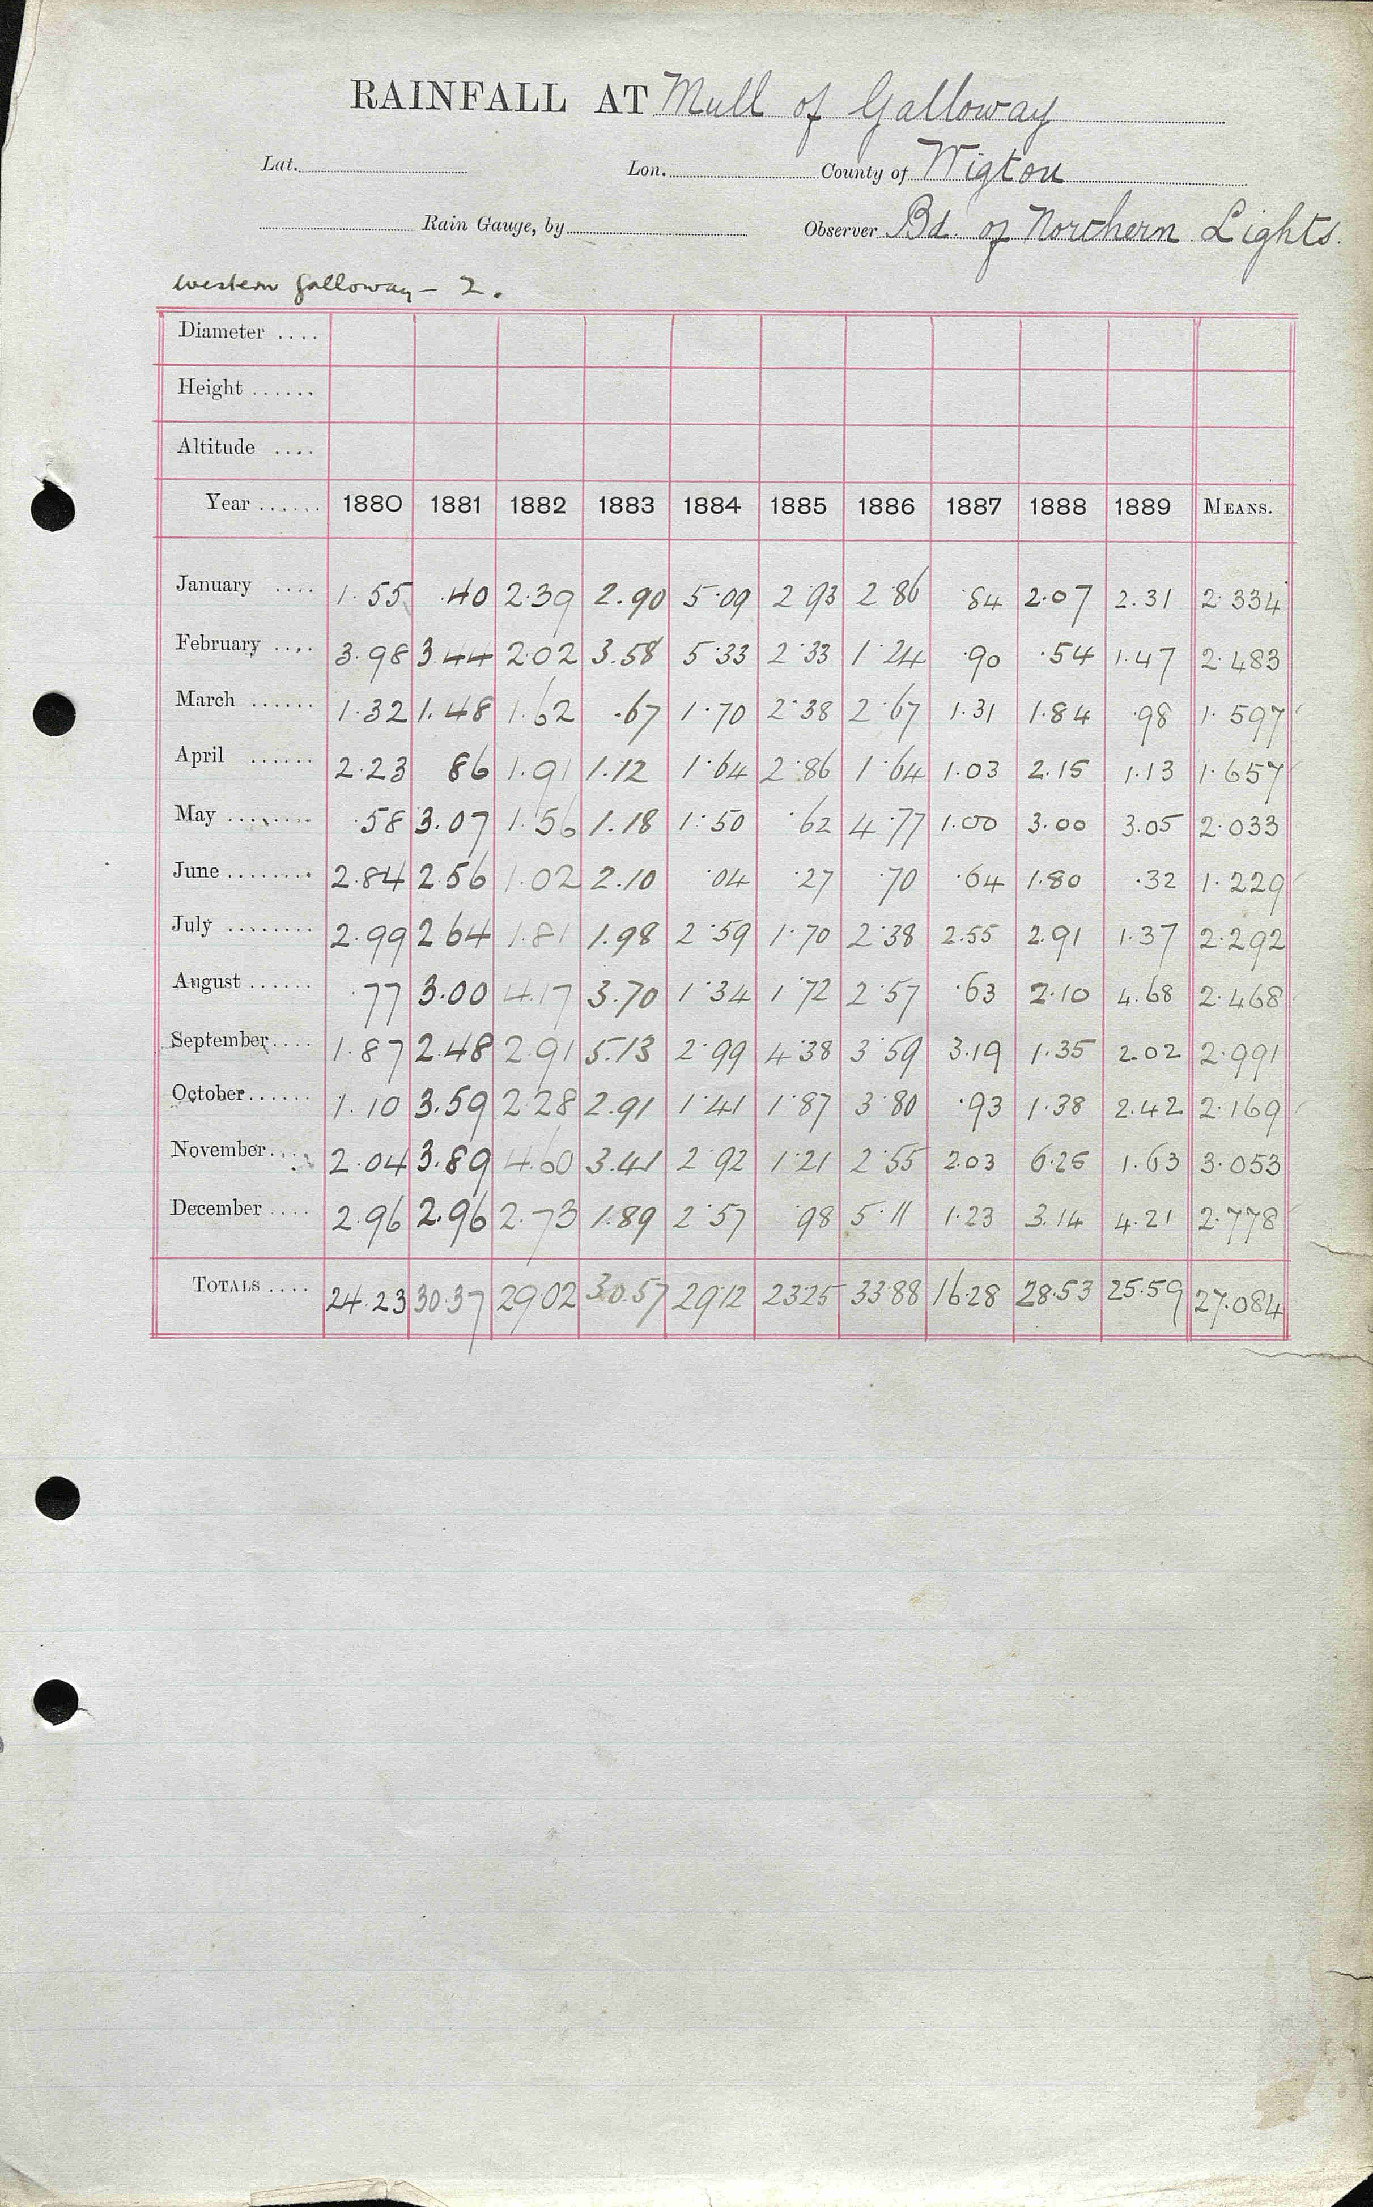 RAINFALL AT Mull of Galloway
Lat. Lon. County of Wigton
Rain Gauge, by Observer Bd. of Northern Lights.
Western Galloway - 2.
Diameter ....
Height ......
Altitude ....
Year ...... 1880 1881 1882 1883 1884 1885 1886 1887 1888 1889 MEANS.
January .... 1.55 .40 2.39 2.90 5.09 2.93 2.86 .84 2.07 2.31 2.334
February .... 3.98 3.44 2.02 3.58 5.33 2.33 1.24 .90 .54 1.47 2.483
March ...... 1.32 1.48 1.62 .67 1.70 2.38 2.67 1.31 1.84 .98 1.597
April ...... 2.23 86 1.91 1.12 1.64 2.86 1.64 1.03 2.15 1.13 1.657
May ........ .58 3.07 1.56 1.18 1.50 .62 4.77 1.00 3.00 3.05 2.033
June ........ 2.84 2.56 1.02 2.10 .04 .27 .70 .64 1.80 .32 1.229
July ........ 2.99 2.64 1.81 1.98 2.59 1.70 2.38 2.55 2.91 1.37 2.292
August ...... .77 3.00 4.17 3.70 1.34 1.72 2.57 .63 2.10 4.68 2.468
September.... 1.87 2.48 2.91 5.13 2.99 4.38 3.59 3.19 1.35 2.02 2.991
October...... 1.10 3.59 2.28 2.91 1.41 1.87 3.80 .93 1.38 2.42 2.169
November.... 2.04 3.89 4.60 3.41 2.92 1.21 2.55 2.03 6.25 1.63 3.053
December .... 2.96 2.96 2.73 1.89 2.57 .98 5.11 1.23 3.14 4.21 2.778
TOTALS .... 24.23 30.37 29.02 30.57 29.12 23.25 33.88 16.28 28.53 25.59 27.084